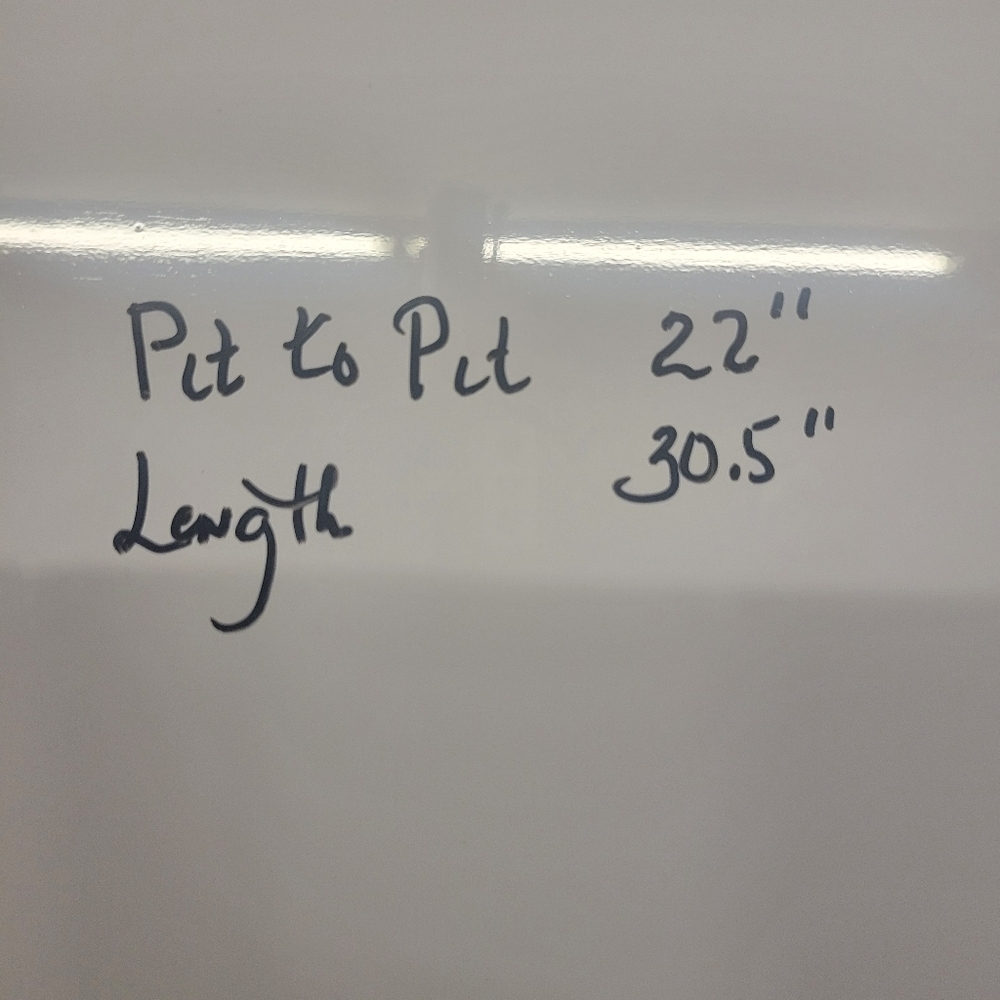 Pit to Pit 22"
Length 30.5"